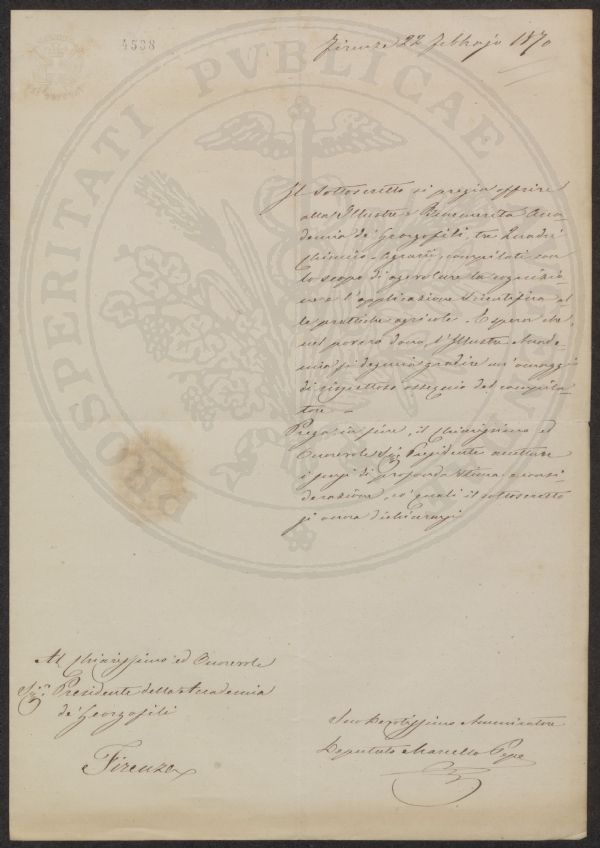 4508
Firenze 22 febbrajo 1870
PROSPERITATI PVBLICAE
Il sottoscritto si pregia offrire
alla Illustre e Benemerita Acca-
demia de' Georgofili, tre Quadri
Chimico-Agrarj, compilati con
lo scopo di agevolare la cognizio-
ne e l'applicazione scientifica al
le pratiche agricole. Espera che,
nel povero dono, l'Illustre Accade-
mia si degnerà gradire un'omaggio
di rispettoso ossequio del compila-
tore =
Prega in fine, il Chiarissimo ed
Onorevole Sig. Presidente accettare
i sensi di profonda stima e consi-
derazione, co' quali il sottoscritto
si onora dichiararsi
Al Chiarissimo ed Onorevole
Sig. Presidente della Accademia
de' Georgofili
Firenze
Suo Devotissimo Ammiratore
Deputato Marcello Pepe